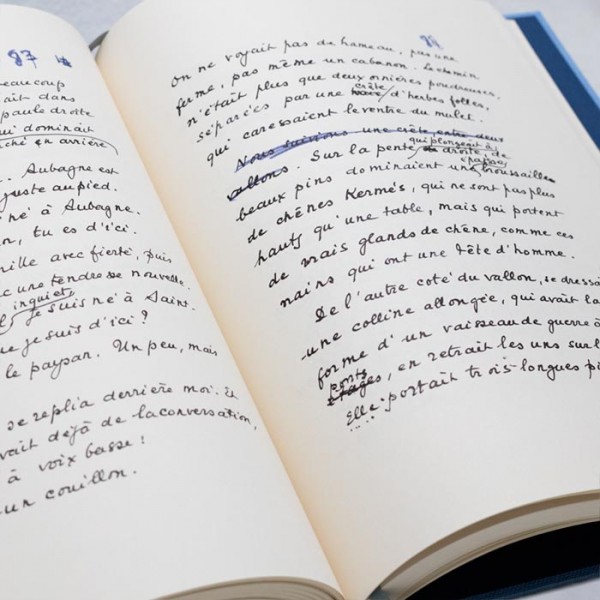 87
eaucoup
ait dans
paule droite
ui dominait
ché en arrière
... Aubagne est
juste au pied.
né à Aubagne.
n, tu es d'ici.
rille avec fierté, puis
c une tendresse nouvelle.
inquiet,
je suis né à Saint.
ue je suis d'ici ?
le paysan. Un peu, mais
se replia derrière moi. Et
vait déjà de la conversation,
à voix basse !
un couillon.
On ne voyait pas de hameau, pas une
ferme, pas même un cabanon. Le chemin
n'était plus que deux ornières poudreuses,
crête
séparées par une d'herbes folles,
qui caressaient le ventre du mulet.
Nous suivions une crête, entre deux
vallons. Sur la pente droite, de
qui plongeait à
épaisse
beaux pins dominaient une broussaille
de chênes Kermès, qui ne sont pas plus
hauts qu'une table, mais qui portent
de vrais glands de chêne, comme ces
nains qui ont une tête d'homme.
De l'autre coté du vallon, se dressa
une colline allongée, qui avait la
forme d'un vaisseau de guerre à
ponts
étages, en retrait les uns sur l
Elle portait trois longues pi